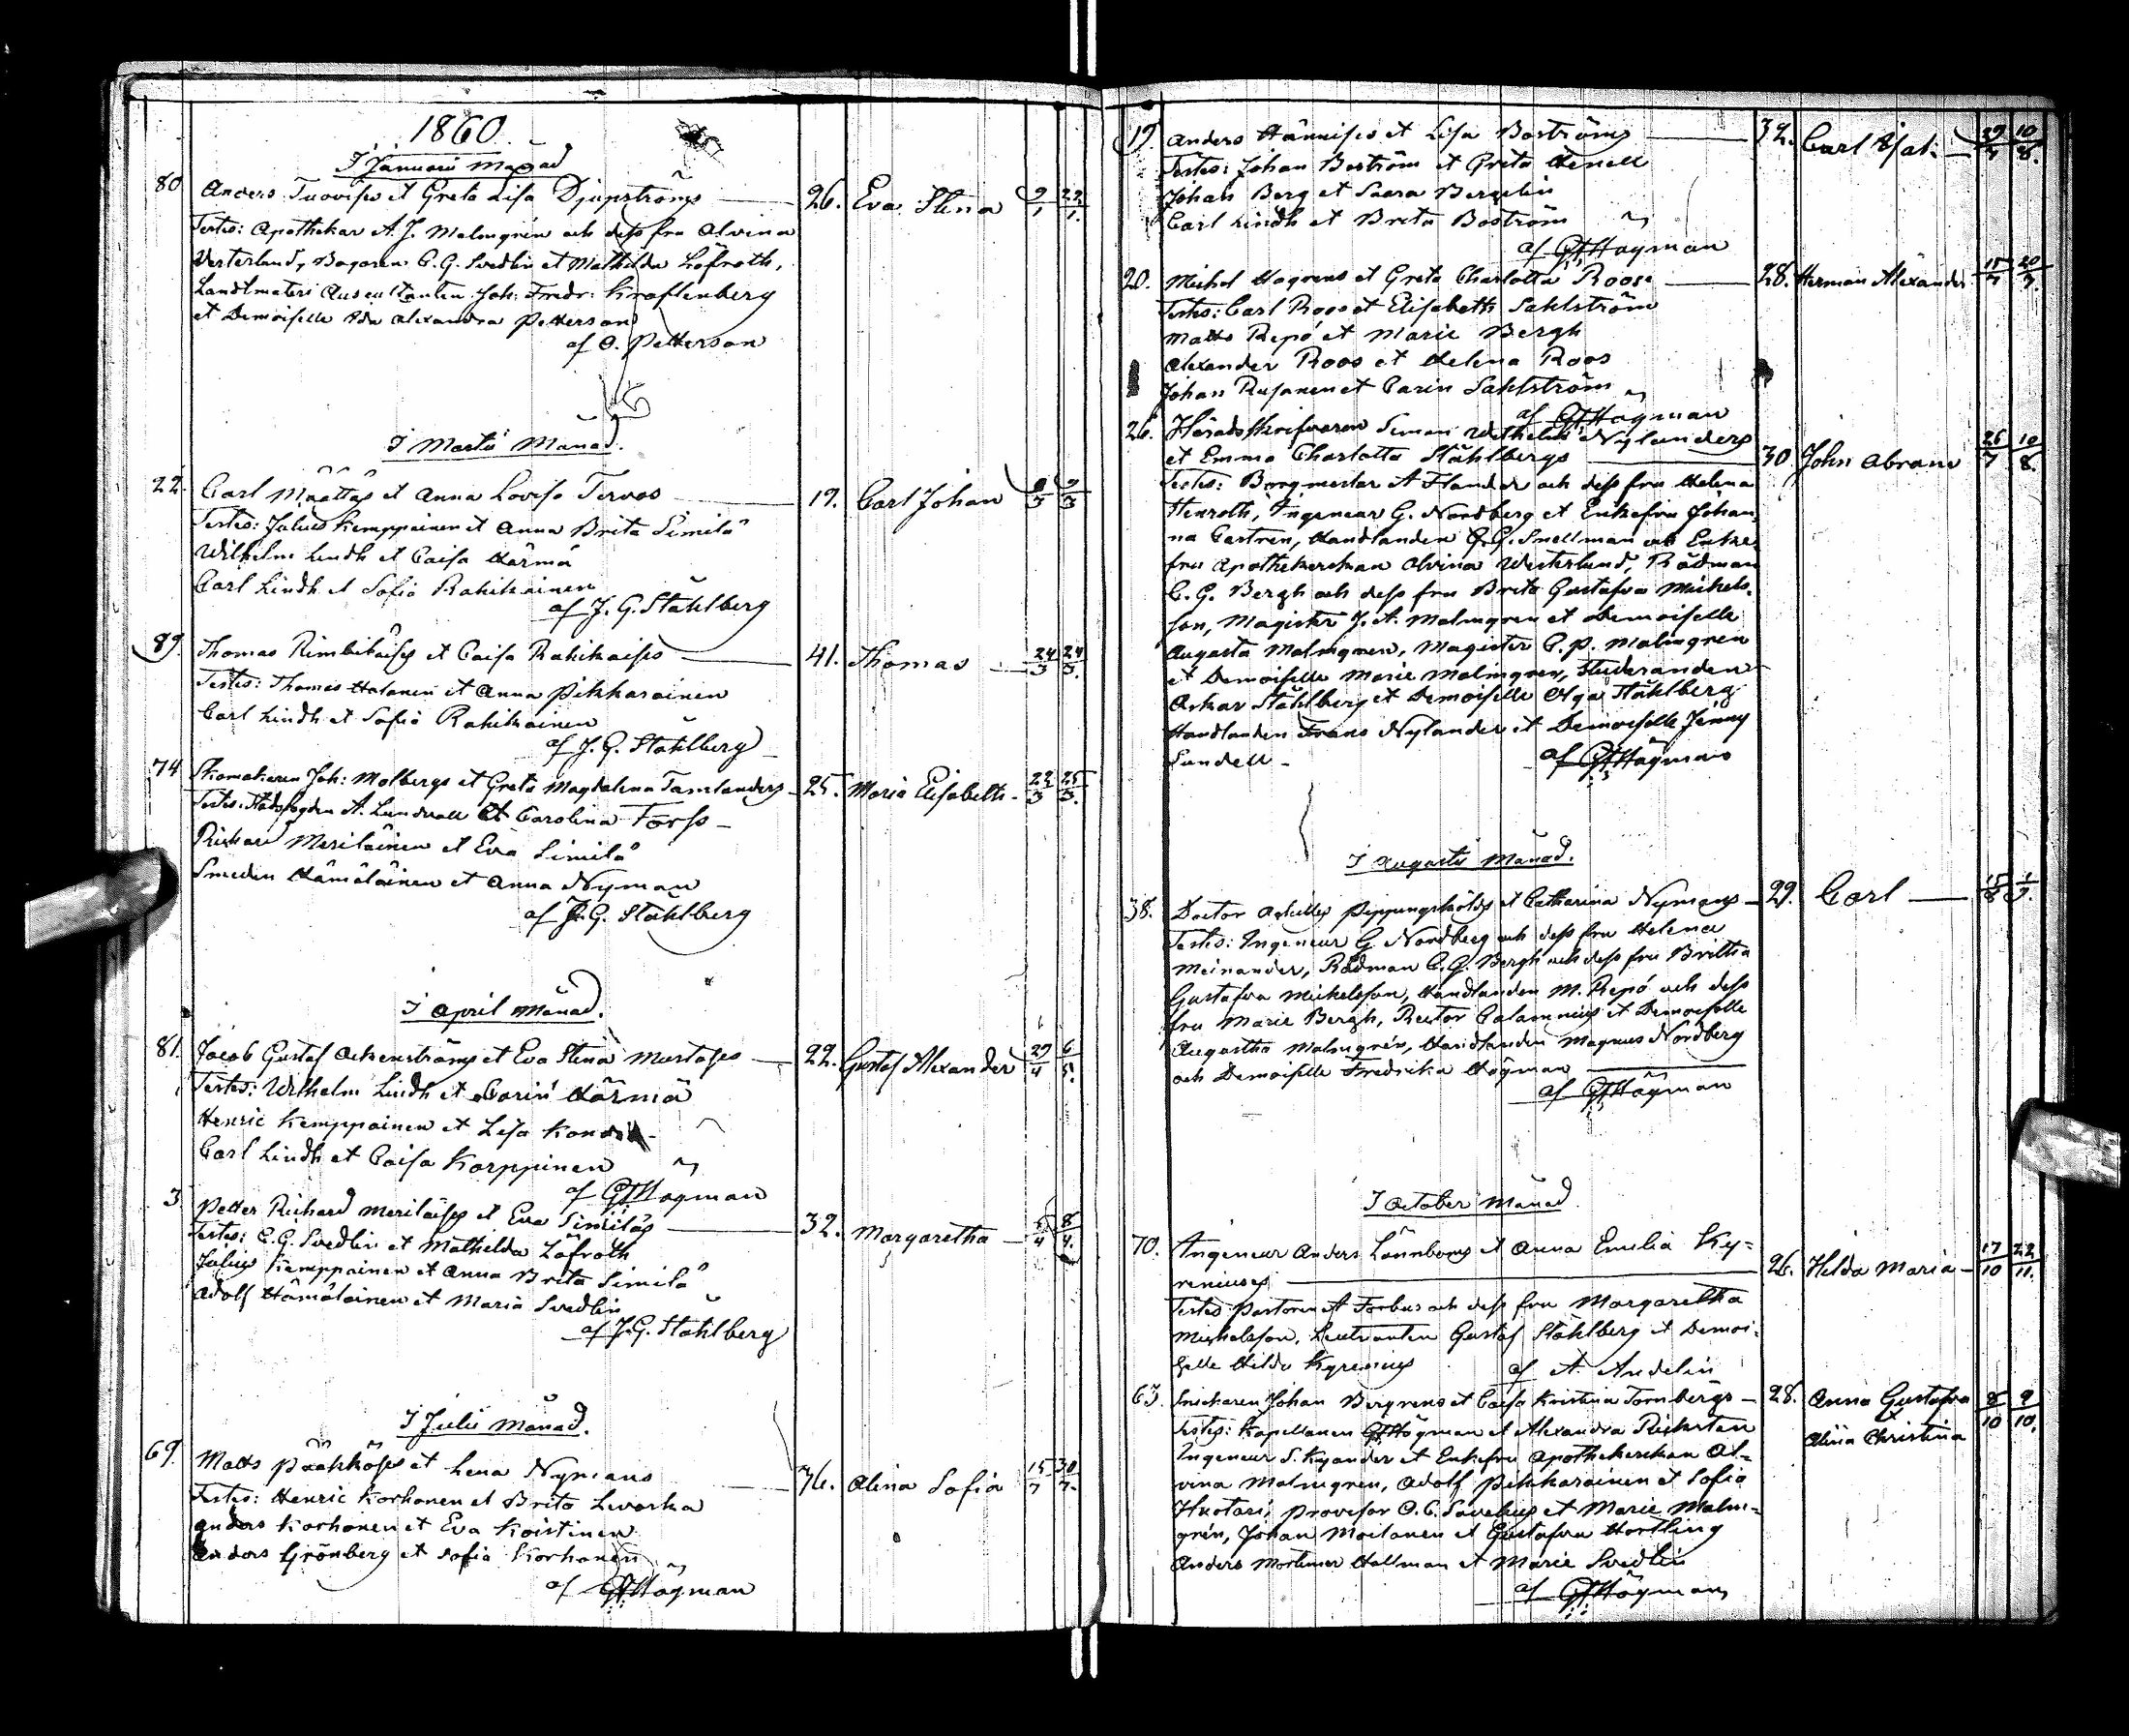 1860.
I Januari Månad
80. Anders Tuovises et Greta Lisa Djupströms 26. Eva Stina 9/1 22/1.
Testes: Apothekar A. J. Malmgrén och dess fru Alvina
Westerlund, Bagaren C. G. Svedlin et Mathilda Löfroth,
Landtmäteri Auscultanten Joh: Fredr: Kraftenberg
et Demoiselle Ida Alexandra Petterson
af O. Petterson
I Martii Månad.
22. Carl Määttäs et Anna Lovisa Tervos 19. Carl Johan
Testes: Julius Kemppainen et Anna Brita Similä
Wilhelm Lindh et Caisa Härmä
Carl Lindh et Sofia Rahikainen
af J. G. Ståhlberg
89. Thomas Rimbikäises et Caisa Rahikaises 41. Thomas 24/3 24/3.
Testes: Thomas Halonen et Anna Pikkarainen
Carl Lindh et Sofia Rahikainen
af J. G. Ståhlberg
74 Skomakaren Joh: Molbergs et Greta Magdalena Tamlanders 25. Maria Elisabeth 22/3 25/3.
Testes: Stadsfogden A. Lundvall et Carolina Forss
Richard Meriläinen et Eva Similä
Smeden Hämäläinen et Anna Nyman
af J. G. Ståhlberg
I April Månad.
81. Jacob Gustaf Ackenströms et Eva Stina Mustases 22. Gustaf Alexander 29/4 6/5.
Testes: Wilhelm Lindh et Carin Härmä
Henric Kemppainen et Lisa
Carl Lindh et Caisa Korppinen
af GfHögman
3 Petter Richard Meriläises et Eva Similäs 32. Margaretha 8/4.
Testes: C. G. Svedlin et Mathilda Löfroth
Julius Kemppainen et Anna Brita Similä
Adolf Hämäläinen et Maria Svedlin
af J. G. Ståhlberg
I Julii Månad.
69. Matts Pääkköses et Lena Nymans 36. Alina Sofia 15/7 30/7.
Testes: Henric Korhonen et Brita Livoska
Anders Korhonen et Eva Koistinen
Anders Grönberg et Sofia Korhonen
af GfHögman
19. Anders Hännises et Lisa Boströms 32. Carl Isak 29/7 10/8.
Testes: Johan Boström et Greta Henell
Johan Berg et Saara Bergelin
Carl Lindh et Brita Boström
af GfHögman
20. Michel Hagrens et Greta Charlotta Roos: 28. Herman Alexander 15/7 20/7.
Testes: Carl Roos et Elisabeth Sahlström
Matts Repó et Marie Bergh
Alexander Roos et Helena Roos
Johan Rusanen et Carin Sahlström
af GfHögman
26. Häradsskrifvaren Simon Wilhelm Nylanders
et Emma Charlotta Ståhlbergs 30 John Abram 26/7 10/8.
Testes: Borgmestar A Flander och dess fru Helena
Henroth, Ingeneur G. Nordberg et Enkefru Johan-
na Castrén, Handlanden G. G. Snellman och Enke-
fru Apothekerskan Alvina Westerlund, Rådman
C. G. Bergh och dess fru Brita Gustafva Michels-
son, Magister J. A. Malmgren et Demoiselle
Augusta Malmgren, Magister C. P. Malmgren
et Demoiselle Marie Malmgren, Studeranden
Oskar Ståhlberg et Demoiselle Olga Ståhlberg
Handlanden Frans Nylander et Demoiselle Jenny
Sundell
af GfHögman
I Augusti Månad.
38. Doctor Achilles Pippingskölds et Catharina Nymans 29. Carl 15/8 1/9.
Testes: Ingeneur G Nordberg och dess fru Helena
Meinander, Rådman C. G. Bergh och dess fru Britha
Gustafva Michelsson, Handlanden M. Repó och dess
fru Marie Bergh, Rector Calamnius et Demoiselle
Augustha Malmgrén, Handlanden Magnus Nordberg
och Demoiselle Fredrika Högman
af GfHögman
I October Månad.
70. Ingeneur Anders Lönnboms et Anna Emelia Ky-
reniuses 26. Hilda Maria 17/10 22/11.
Testes: Pastoren A Forbus och dess fru Margaretha
Michelsson, Lieutnanten Gustaf Ståhlberg et Demoi-
selle Hilda Kyrenius af A. Andelin
63. Snickaren Johan Bergrens et Caisa Kristina Tornbergs 28. Anna Gustafva 8/10 9/10.
et
Alina Christina
Testes: Kapellanen GfHögman et Alexandra Richstén
Ingeneur S. Kyander et Enkefru Apothekerskan Al-
vina Malmgren, Adolf Pikkarainen et Sofia
Huotari, Provisor O. C. Savelius et Marie Malm-
grén, Johan Moilanen et Gustafva Hortling
Anders Mortimer Hallman et Marie Svedlin
af GfHögman